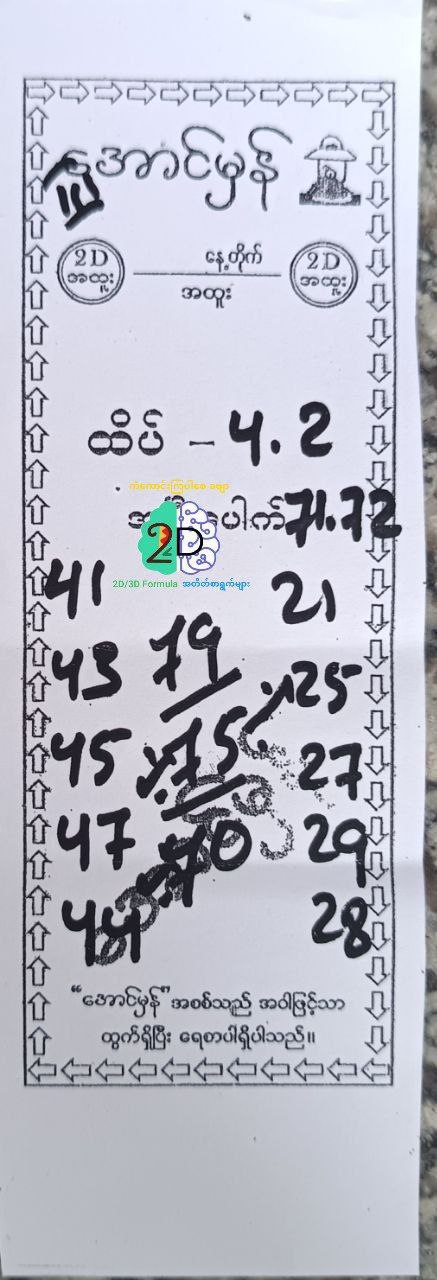 အောင်မှန်
2D အထူး
နေ့တိုက်
အထူး
2D အထူး
ထိပ် - 4. 2
ကံကောင်းကြပါစေ ခဗျာ
71.72
2D
2D/3D Formula အတိတ်စာရွက်များ
41 21
79
43 25
75
45 27
70
47 29
44 28
"အောင်မှန်" အစစ်သည် အဝါဖြင့်သာ
ထွက်ရှိပြီး ရေစာပါရှိပါသည်။